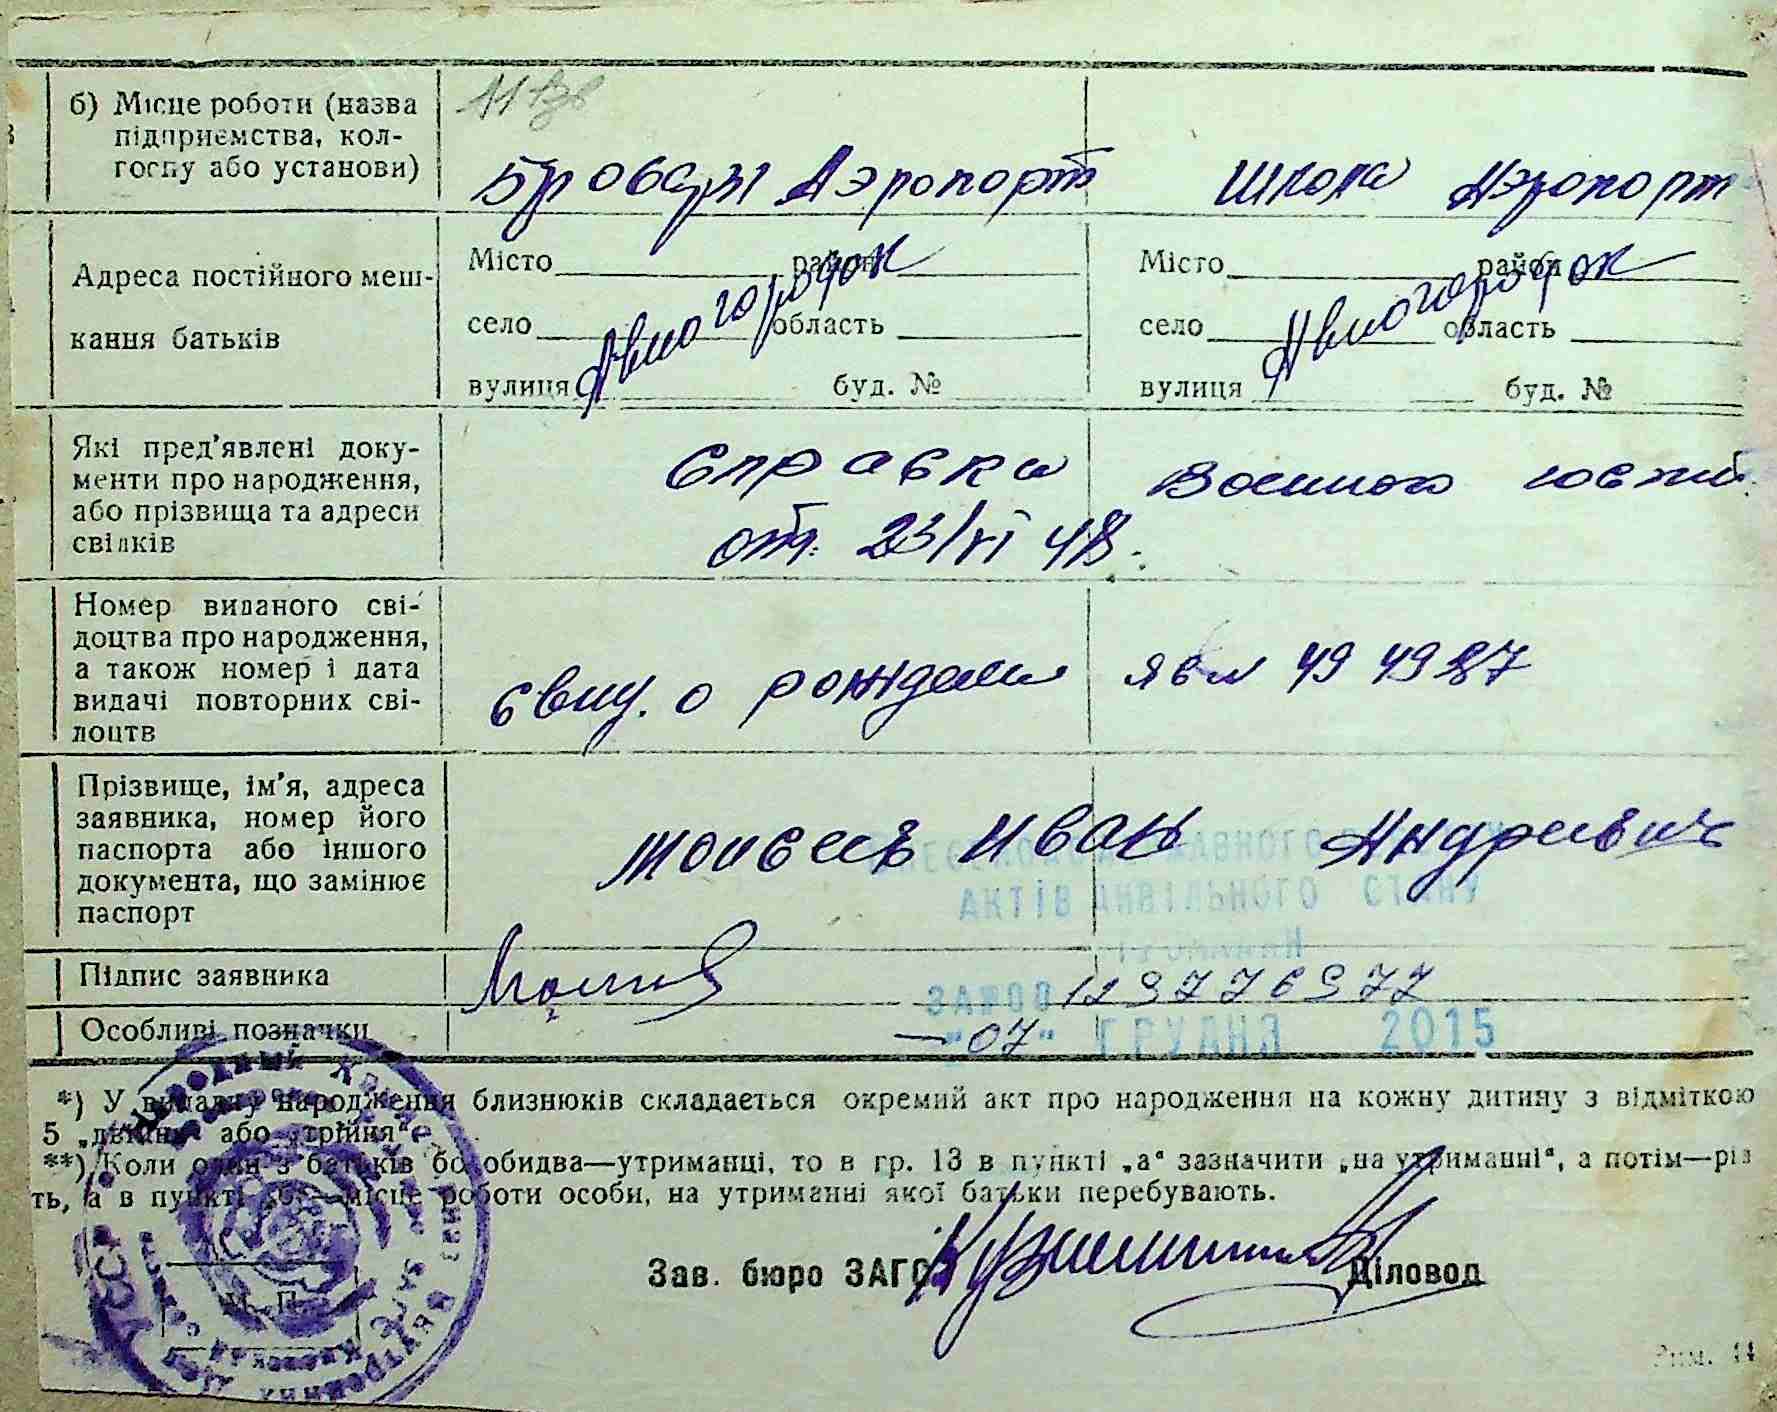 б) Місце роботи (назва
підприємства, кол-
госпу або установи)
Бровары Аэропорт Школа Аэропорт
Адреса постійного меш-
кання батьків
Місто район
село область
вулиця буд. №
Авиогородок
Місто район
село область
вулиця буд. №
Авиогородок
Які пред'явлені доку-
менти про народження,
або прізвища та адреси
свідків
Справка Военного
от. 23/VI 48.
Номер виданого сві-
доцтва про народження,
а також номер і дата
видачі повторних сві-
доцтв
о рождении 49 49 87
Прізвище, ім'я, адреса
заявника, номер його
паспорта або іншого
документа, що замінює
паспорт
Моисеев Иван Андреевич
АКТІВ ЦИВІЛЬНОГО СТАНУ
ГРОМАДЯН
Підпис заявника
Особливі позначки
"07" ГРУДНЯ 2015
*) У випадку народження близнюків складається окремий акт про народження на кожну дитину з відміткою
5 „двійня" або „трійня".
**) Коли один з батьків бо обидва—утриманці, то в гр. 13 в пункті „а" зазначити „на утриманні", а потім—рів
ть, а в пункті „б"—місце роботи особи, на утриманні якої батьки перебувають.
Зав. бюро ЗАГС Діловод
М. П.